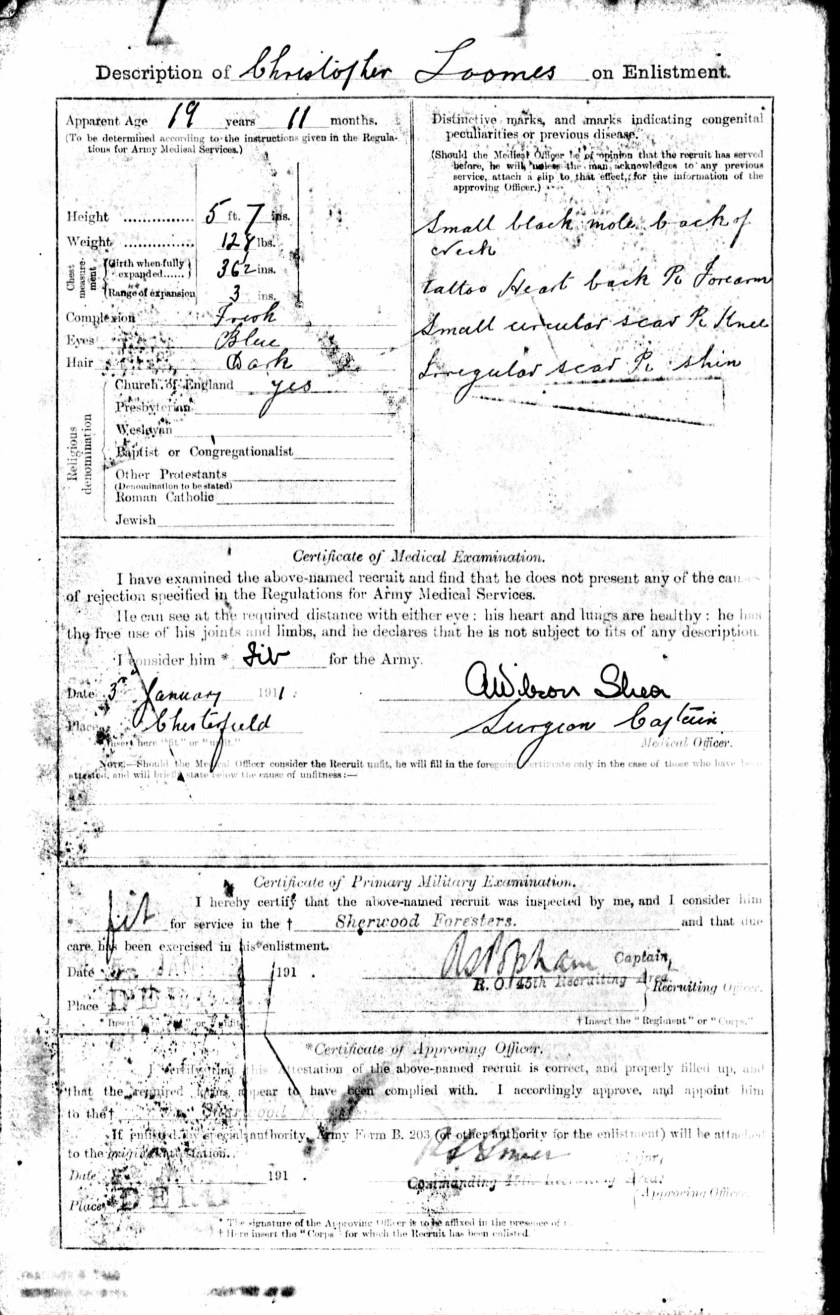 Description of Christopher Loomes on Enlistment.
Apparent Age 19 years 11 months.
(To be determined according to the instructions given in the Regula-
tions for Army Medical Services.)
Height 5 ft. 7 ins.
Weight 128 lbs.
Chest measure-ment
Girth when fully expanded 36½ ins.
Range of expansion 3 ins.
Complexion Fresh
Eyes Blue
Hair Dark
Religious denomination
Church of England yes
Presbyterian
Wesleyan
Baptist or Congregationalist
Other Protestants
(Denomination to be stated)
Roman Catholic
Jewish
Distinctive marks, and marks indicating congenital
peculiarities or previous disease.
(Should the Medical Officer be of opinion that the recruit has served
before, he will, unless the man acknowledges to any previous
service, attach a slip to that effect, for the information of the
approving Officer.)
Small black mole back of
neck
tattoo Heart back R Forearm
Small circular scar R Knee
Irregular scar R shin
Certificate of Medical Examination.
I have examined the above-named recruit and find that he does not present any of the
of rejection specified in the Regulations for Army Medical Services.
He can see at the required distance with either eye: his heart and lungs are healthy: he has
the free use of his joints and limbs, and he declares that he is not subject to fits of any description
I consider him * fit for the Army.
Date 3rd January 1911.
Place Chesterfield
A Wilson Shea
Surgeon Captain
Medical Officer.
*Insert here "fit" or "unfit."
NOTE.—Should the Medical Officer consider the Recruit unfit, he will fill in the foregoing certificate only in the case of those who have been
attested, and will briefly state below the cause of unfitness:—
Certificate of Primary Military Examination.
I hereby certify that the above-named recruit was inspected by me, and I consider him
fit for service in the † Sherwood Foresters. and that due
care has been exercised in his enlistment.
Date JAN 191 .
Place
Popham Captain,
R. O. 45th Recruiting Area
Recruiting Officer.
* Insert "fit" or "unfit"
† Insert the "Regiment" or "Corps."
*Certificate of Approving Officer.
I certify that this Attestation of the above-named recruit is correct, and properly filled up, and
that the required forms appear to have been complied with. I accordingly approve, and appoint him
to the† Sherwood
If enlisted by special authority, Army Form B. 203 (or other authority for the enlistment) will be attached
to the original attestation.
Date 191 .
Place
Major,
Commanding 45th Recruiting Area
Approving Officer.
* The signature of the Approving Officer is to be affixed in the presence of
† Here insert the "Corps" for which the Recruit has been enlisted.